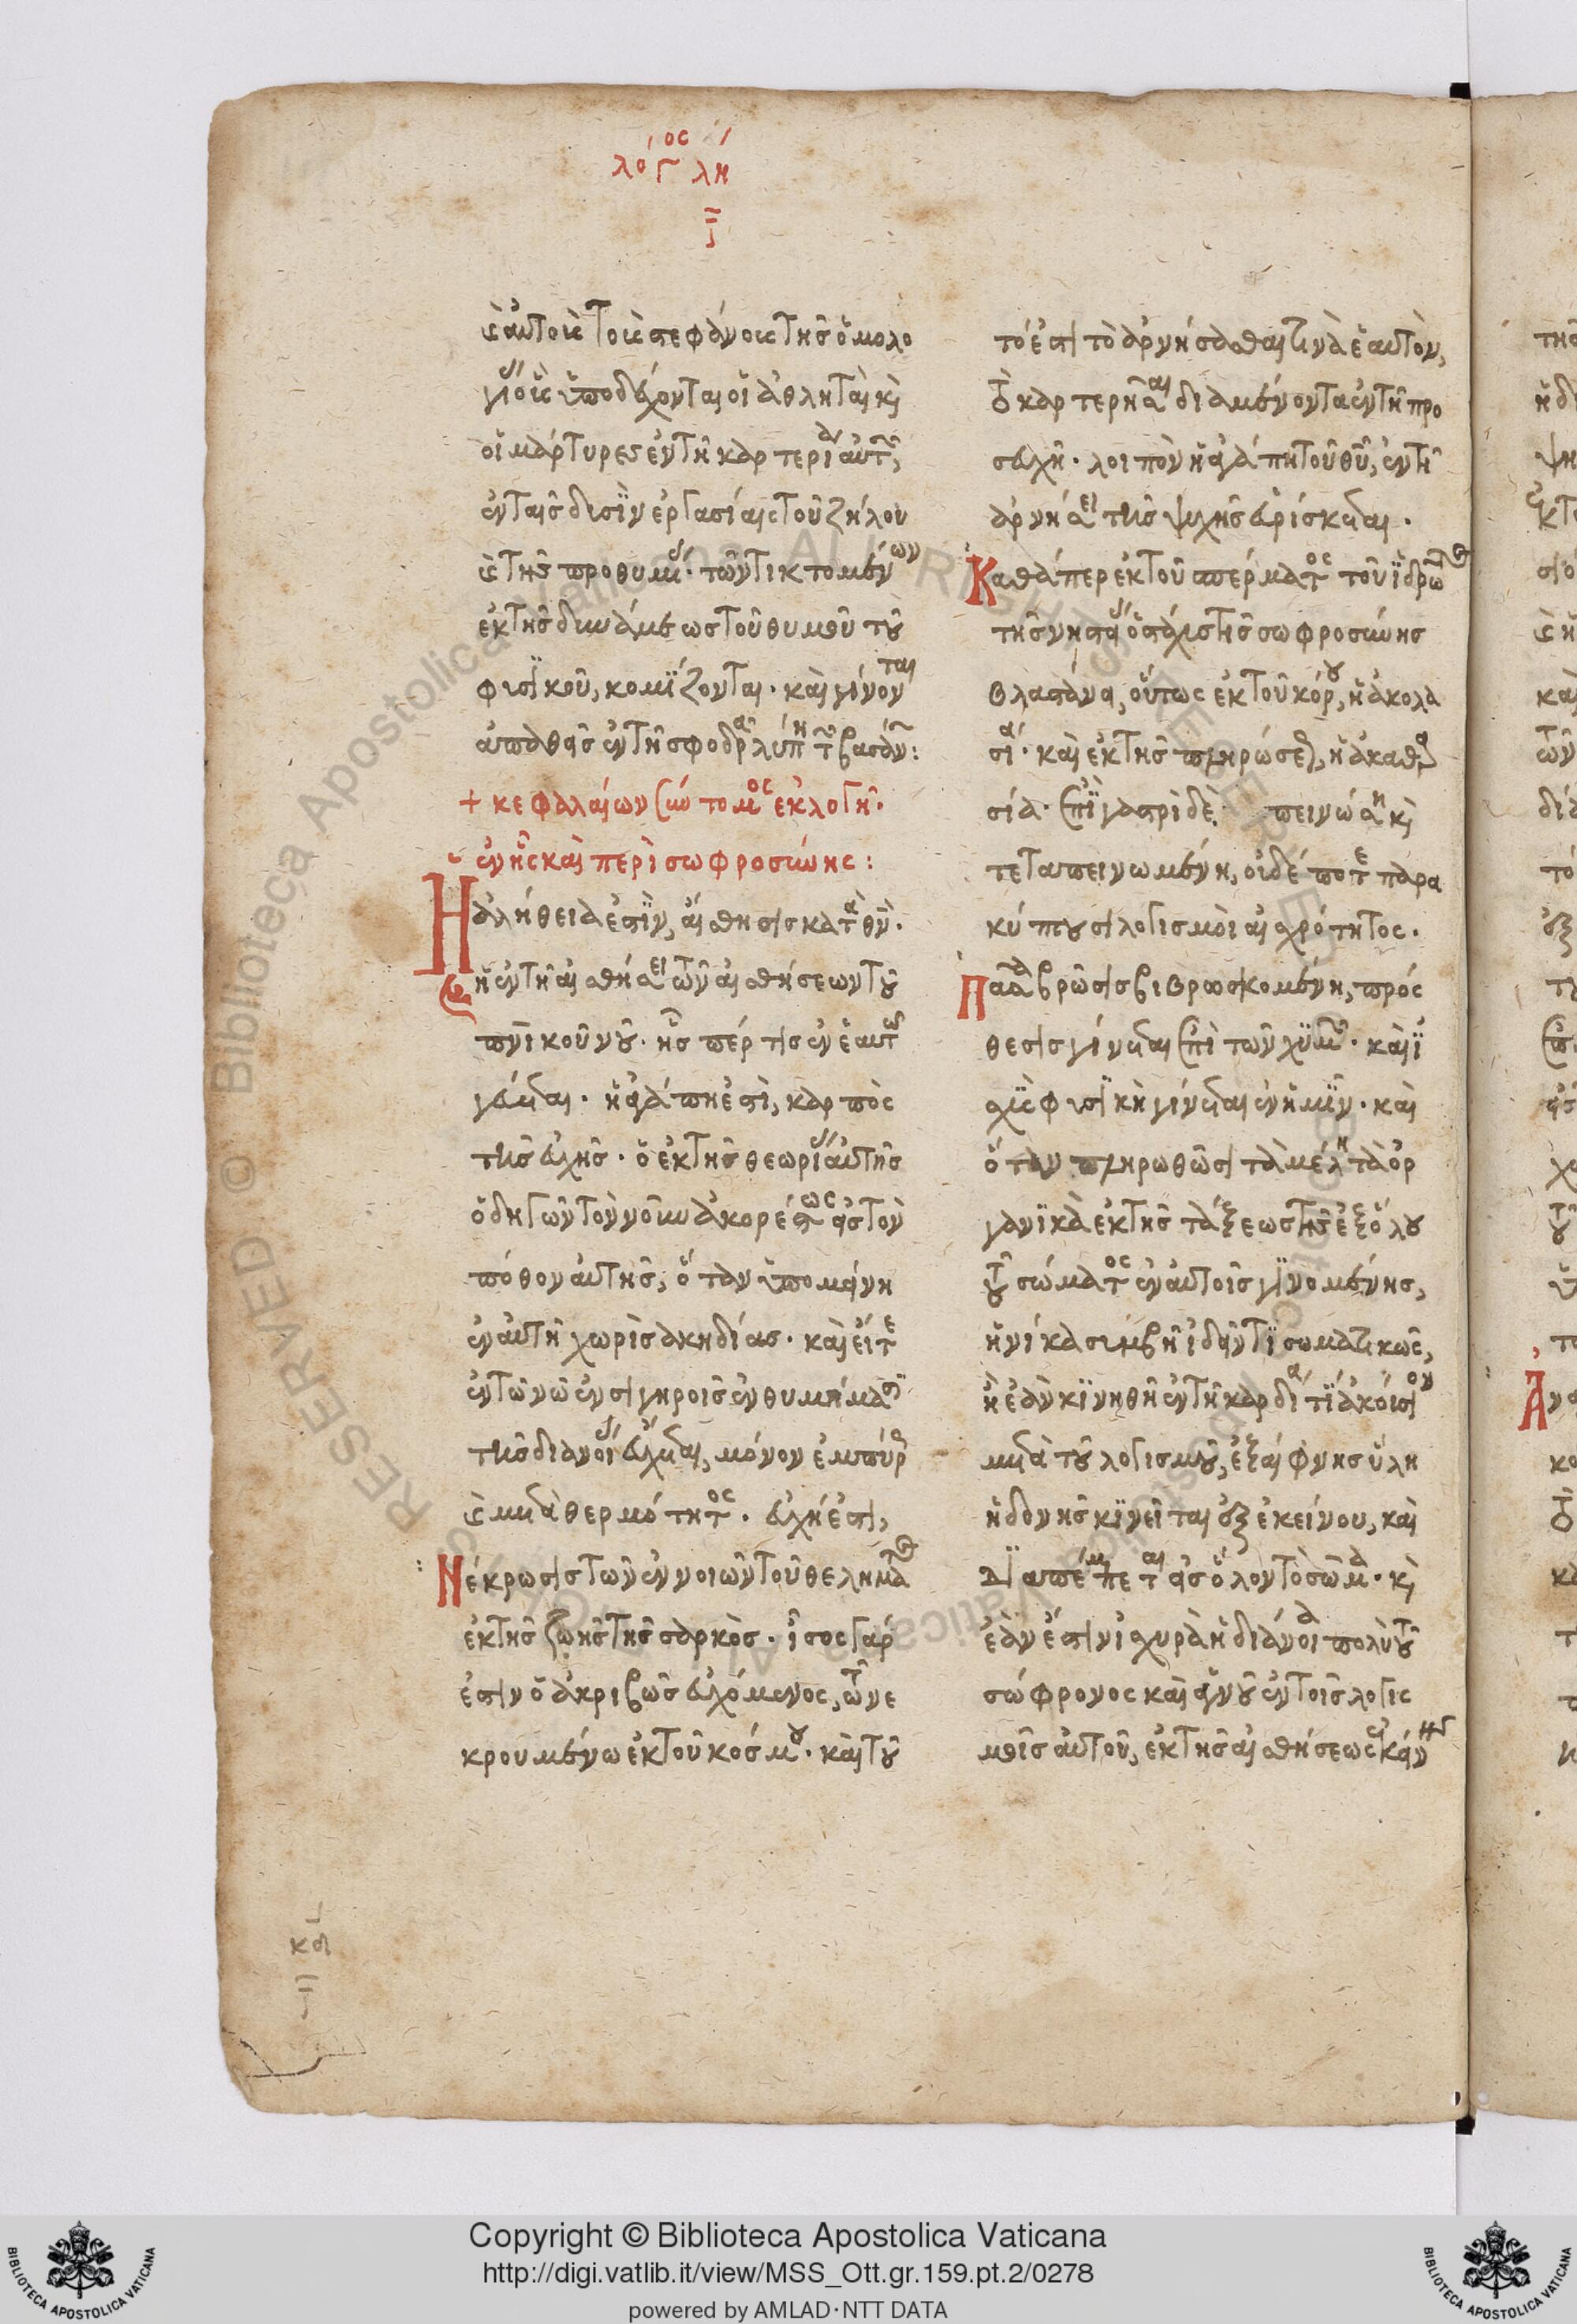 λόγος λη
ῑ
ἐν αὐτοῖς τοῖς στεφάνοις τῆς ὁμολο
γίας οἷς ὑποδέχονται οἱ ἀθληταὶ καὶ
οἱ μάρτυρες ἐν τῇ καρτερίᾳ αὐτῶν,
ἐν ταῖς δυσὶν ἐργασίαις τοῦ ζήλου
καὶ τῆς προθυμίας· τῶν τικτομένων
ἐκ τῆς δυνάμεως τοῦ θυμοῦ τοῦ
φυσικοῦ, κομίζονται· καὶ γίνονται
ἀπαθεῖς ἐν τῇ σφοδρᾷ λύπῃ τῶν βασάνων:
+ κεφαλαίων συντομος ἐκλογή·
ἐν ᾗ καὶ περὶ σωφροσύνης:
Ἡ ἀλήθειά ἐστιν, αἴσθησις κατὰ θν·
ἡ ἐν τῇ αἰσθήσει τῶν αἰσθήσεων τοῦ
πνικοῦ νοῦ· ἧς πέρ τις ἐν ἑαυτῷ
γεύεται· ἡ ἀγάπη ἐστὶ, καρπὸς
τῆς εὐχῆς· ὁ ἐκ τῆς θεωρίας αὐτῆς
ὁδηγῶν τὸν νοῦν ἀκορέστως εἰς τὸν
πόθον αὐτῆς, ὅταν ὑπομείνῃ
ἐν αὐτῇ χωρὶς ἀκηδίας· καὶ εἴτε
ἐν τῷ νῷ ἐν σιγηροῖς ἐνθυμήμασι
τῆς διανοίας εὔχεται, μόνον ἐμπύρως
καὶ μετὰ θερμότητος· εὐχή ἐστι,
Νέκρωσις τῶν ἐννοιῶν τοῦ θελήματος
ἐκ τῆς ζωῆς τῆς σαρκὸς· ἴσος γάρ
ἐστιν ὁ ἀκριβῶς εὐχόμενος, τῷ νε
κρουμένῳ ἐκ τοῦ κόσμου· καὶ τοῦ
τό ἐστι τὸ ἀρνήσασθαι τινὰ ἑαυτὸν,
τὸ καρτερῆσαι διαμένοντα ἐν τῇ προ
σευχῇ· λοιπὸν ἡ ἀγάπη τοῦ θυ, ἐν τῇ
ἀρνήσει τῆς ψυχῆς εὑρίσκεται·
Καθάπερ ἐκ τοῦ σπέρματος τοῦ ἱδρῶτος
τῆς νηστείας ὁ στάχυς τῆς σωφροσύνης
βλαστάνει, οὕτως ἐκ τοῦ κόρου, ἡ ἀκολα
σία· καὶ ἐκ τῆς πληρώσεως, ἡ ἀκαθαρ
σία· ἐπὶ γαστρὶ δὲ πεινώσῃ καὶ
τεταπεινωμένῃ, οὐδέποτε παρα
κύπτουσι λογισμοὶ αἰσχρότητος·
Πᾶσα βρῶσις βιβρωσκομένη, πρόσ
θεσις γίνεται ἐπὶ τῶν χυμῶν· καὶ ἰ
σχὺς φυσικὴ γίνεται ἐν ἡμῖν· καὶ
ὅταν πληρωθῶσι τὰ μέλη τὰ ὀρ
γανικὰ ἐκ τῆς τάξεως τῆς ἐξ ὅλου
τοῦ σώματος ἐν αὐτοῖς γινομένης,
ἡνίκα συμβῇ ἰδεῖν τί σωματικῶς,
ἢ ἐὰν κινηθῇ ἐν τῇ καρδίᾳ τί ἀκούσιον
μετὰ τοῦ λογισμοῦ, ἐξαίφνης ὕλη
ἡδονῆς κινεῖται ἐξ ἐκείνου, καὶ
διαπέμπεται εἰς ὅλον τὸ σῶμα· καὶ
ἐὰν ἔστιν ἰσχυρὰ ἡ διάνοια πολὺ τοῦ
σώφρονος καὶ ἁγνοῦ ἐν τοῖς λογισ
μοῖς αὐτοῦ, ἐκ τῆς αἰσθήσεως ἐκείνης
Copyright © Biblioteca Apostolica Vaticana
http://digi.vatlib.it/view/MSS_Ott.gr.159.pt.2/0278
powered by AMLAD·NTT DATA
BIBLIOTECA APOSTOLICA VATICANA
BIBLIOTECA APOSTOLICA VATICANA